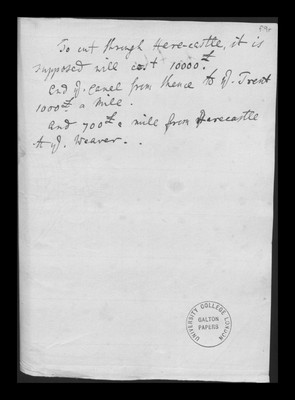 To cut through Hare-castle, it is
supposed will cost 10000£.
And yͤ. Canal from thence to yͤ. Trent
1000£ a mile.
And 700£ a mile from Harecastle
to yͤ. Weaver.
UNIVERSITY COLLEGE LONDON
GALTON
PAPERS